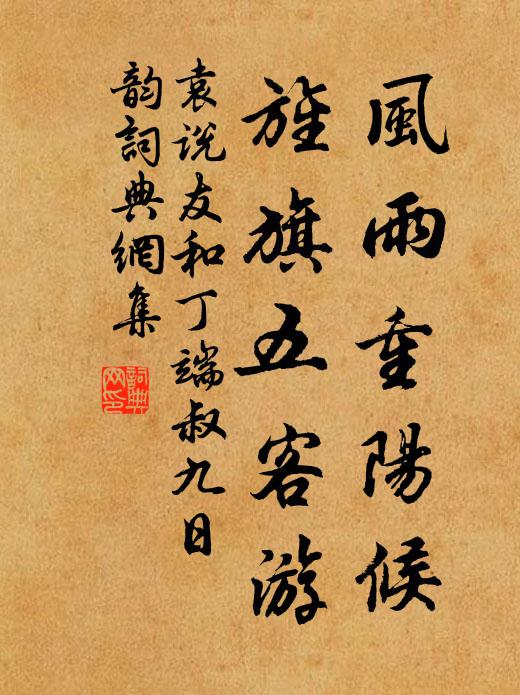 風雨重陽候
旌旗五客游
袁說友和丁端叔九日
韵詞典網集
詞典網印